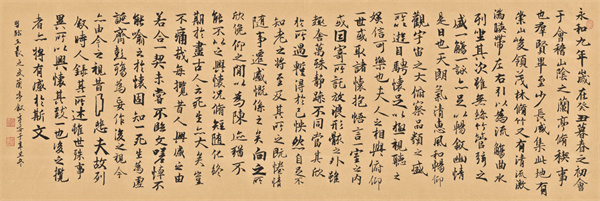 永和九年歲在癸丑暮春之初會
于會稽山陰之蘭亭脩禊事
也羣賢畢至少長咸集此地有
崇山峻領茂林脩竹又有清流激
湍暎帶左右引以為流觴曲水
列坐其次雖無絲竹管弦之
盛一觴一詠亦足以暢敘幽情
是日也天朗氣清惠風和暢仰
觀宇宙之大俯察品類之盛
所以遊目騁懷足以極視聽之
娛信可樂也夫人之相與俯仰
一世或取諸懷抱悟言一室之內
或因寄所託放浪形骸之外雖
趣舍萬殊靜躁不同當其欣
於所遇暫得於己快然自足不
知老之將至及其所之既惓情
隨事遷感慨係之矣向之所
欣俛仰之間以為陳迹猶不
能不以之興懷況脩短隨化終
期於盡古人云死生亦大矣豈
不痛哉每攬昔人興感之由
若合一契未嘗不臨文嗟悼不
能喻之於懷固知一死生為虛
誕齊彭殤為妄作後之視今
亦由今之視昔悲夫故列
敘時人錄其所述雖世殊事
異所以興懷其致一也後之攬
者亦將有感於斯文